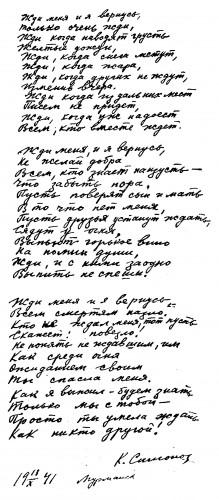 Жди меня и я вернусь,
только очень жди,
Жди когда наводят грусть
Желтые дожди,
Жди, когда снега метут,
Жди, когда жара,
Жди, когда других не ждут,
Изменив вчера.
Жди когда из дальних мест
Писем не придет,
Жди, когда уже надоест
Всем, кто вместе ждет.
Жди меня и я вернусь,
Не желай добра
Всем, кто знает наизусть
Что забыть пора,
Пусть поверят сын и мать
В то что нет меня,
Пусть друзья устанут ждать,
Сядут у огня,
Выпьют горькое вино
На помин души,
Жди, и с ними заодно
Выпить не спеши.
Жди меня и я вернусь
Всем смертям назло.
Кто не ждал меня, тот пусть
Скажет: повезло.
Не понять не ждавшим, им
Как среди огня
Ожиданием своим
Ты спасла меня.
Как я выжил – будем знать
Только мы с тобой –
Просто ты умела ждать
Как никто другой!
К. Симонов
19 X 41
Мурманск